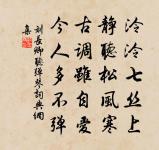 泠泠七丝上
静听松风寒
古调虽自爱
今人多不弹
刘长卿听弹琴词典网
集